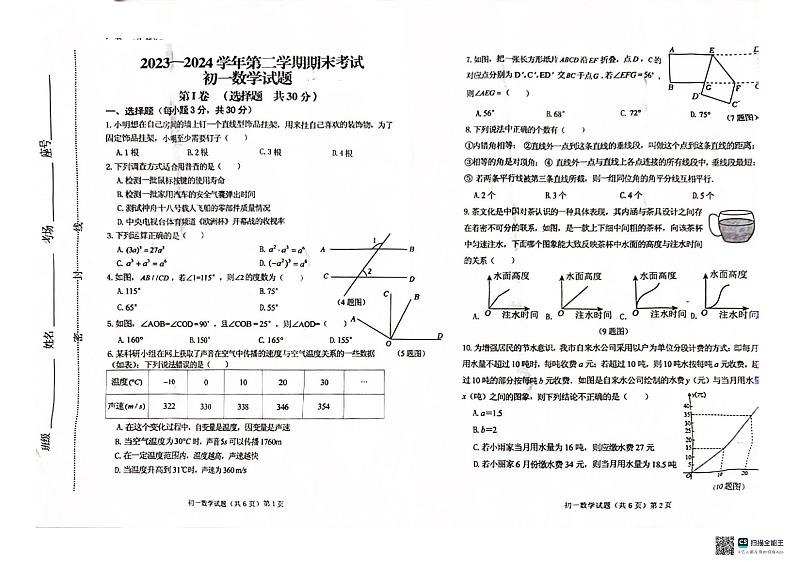 2023—2024学年第二学期期末考试
初一数学试题
第I卷 (选择题 共30分)
一、选择题 (每小题3分，共30分)
1. 小明想在自己房间的墙上钉一个直线型饰品挂架，用来挂自己喜欢的装饰物，为了
固定饰品挂架，小明至少需要钉子（ ）
A. 1根 B. 2根 C. 3根 D. 4根
2. 下列调查方式适合用普查的是（ ）
A. 检测一批鼠标按键的使用寿命
B. 检测一批家用汽车的安全气囊弹出时间
C. 测试神舟十八号载人飞船的零部件质量情况
D. 中央电视台体育频道《欧洲杯》开幕战的收视率
3. 下列运算正确的是（ ）
A. (3a)³ = 27a³ B. a²·a³ = a⁶
C. a³ + a³ = a⁶ D. (−a²)³ = a⁶
4. 如图，AB//CD，若∠1=115°，则∠2的度数为（ ）
A. 115° B. 75°
C. 65° D. 55°
A B C D 1 2
(4题图)
5. 如图，∠AOB=∠COD=90°，且∠COB=25°，则∠AOD=（ ）
A. 160° B. 150° C. 165° D. 155°
A C B O D
(5题图)
6. 某科研小组在网上获取了声音在空气中传播的速度与空气温度关系的一些数据
(如表)：下列说法错误的是（ ）
温度(℃) −10 0 10 20 30 …
声速(m/s) 322 330 338 346 354
A. 在这个变化过程中，自变量是温度，因变量是声速
B. 当空气温度为30℃时，声音5s可以传播1760m
C. 在一定温度范围内，温度越高，声速越快
D. 当温度升高到31℃时，声速为360m/s
初一数学试题 (共6页) 第1页
班级
姓名
考场
座号
密
封
线
7. 如图，把一张长方形纸片ABCD沿EF折叠，点D，C的
对应点分别为D′,C′,ED′交BC于点G,若∠EFG=56°，
则∠AEG=（ ）
A. 56° B. 68° C. 72° D. 75°
A E B G F D′ C′
(7题图)
8. 下列说法中正确的个数有（ ）
①内错角相等； ②直线外一点到这条直线的垂线段，叫做这个点到这条直线的距离；
③相等的角是对顶角； ④ 直线外一点与直线上各点连接的所有线段中，垂线段最短；
⑤ 若两条平行线被第三条直线所截，则一组同位角的角平分线互相平行.
A. 2个 B. 3个 C. 4个 D. 5个
9. 茶文化是中国对茶认识的一种具体表现，其内涵与茶具设计之间存
在着密不可分的联系，如图，是一款上下细中间粗的茶杯，向该茶杯
中匀速注水，下面哪个图象能大致反映茶杯中水面的高度与注水时间
的关系（ ）
水面高度 水面高度 水面高度 水面高度
A. O 注水时间 B. O 注水时间 C. O 注水时间 D. O 注水时间
(9题图)
10. 为增强居民的节水意识，我市自来水公司采用以户为单位分段计费的方式：即每月
用水量不超过10吨时，每吨收费a元；若超过10吨，则10吨水按每吨a元收费，超
过10吨的部分按每吨b元收费．如图是自来水公司绘制的水费y（元）与当月用水量
x（吨）之间的图象，则下列结论不正确的是（ ）
A. a=1.5
B. b=2
C. 若小雨家当月用水量为16吨，则应缴水费27元
D. 若小丽家6月份缴水费34元，则当月用水量为18.5吨
y(元)
40
35
30
25
20
15
10
5
O 10 20
(10题图)
初一数学试题 (共6页) 第2页
CS 扫描全能王
3亿人都在用的扫描App